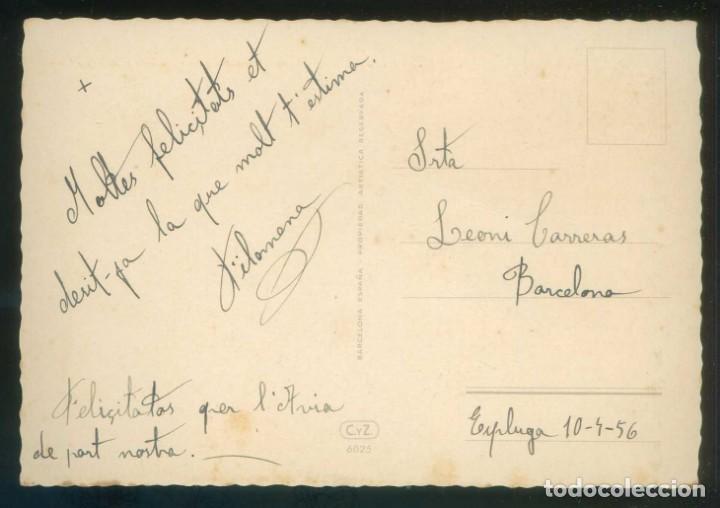 +
Moltes felicitats et
desit-ja la que molt t'estima.
Filomena
Feliçitatas per l'Avia
de part nostra.
BARCELONA ESPAÑA - PROPIEDAD ARTISTICA RESERVADA
C.yZ.
6025
Srta
Leoni Carreras
Barcelona
Espluga 10-4-56
todocoleccion.net